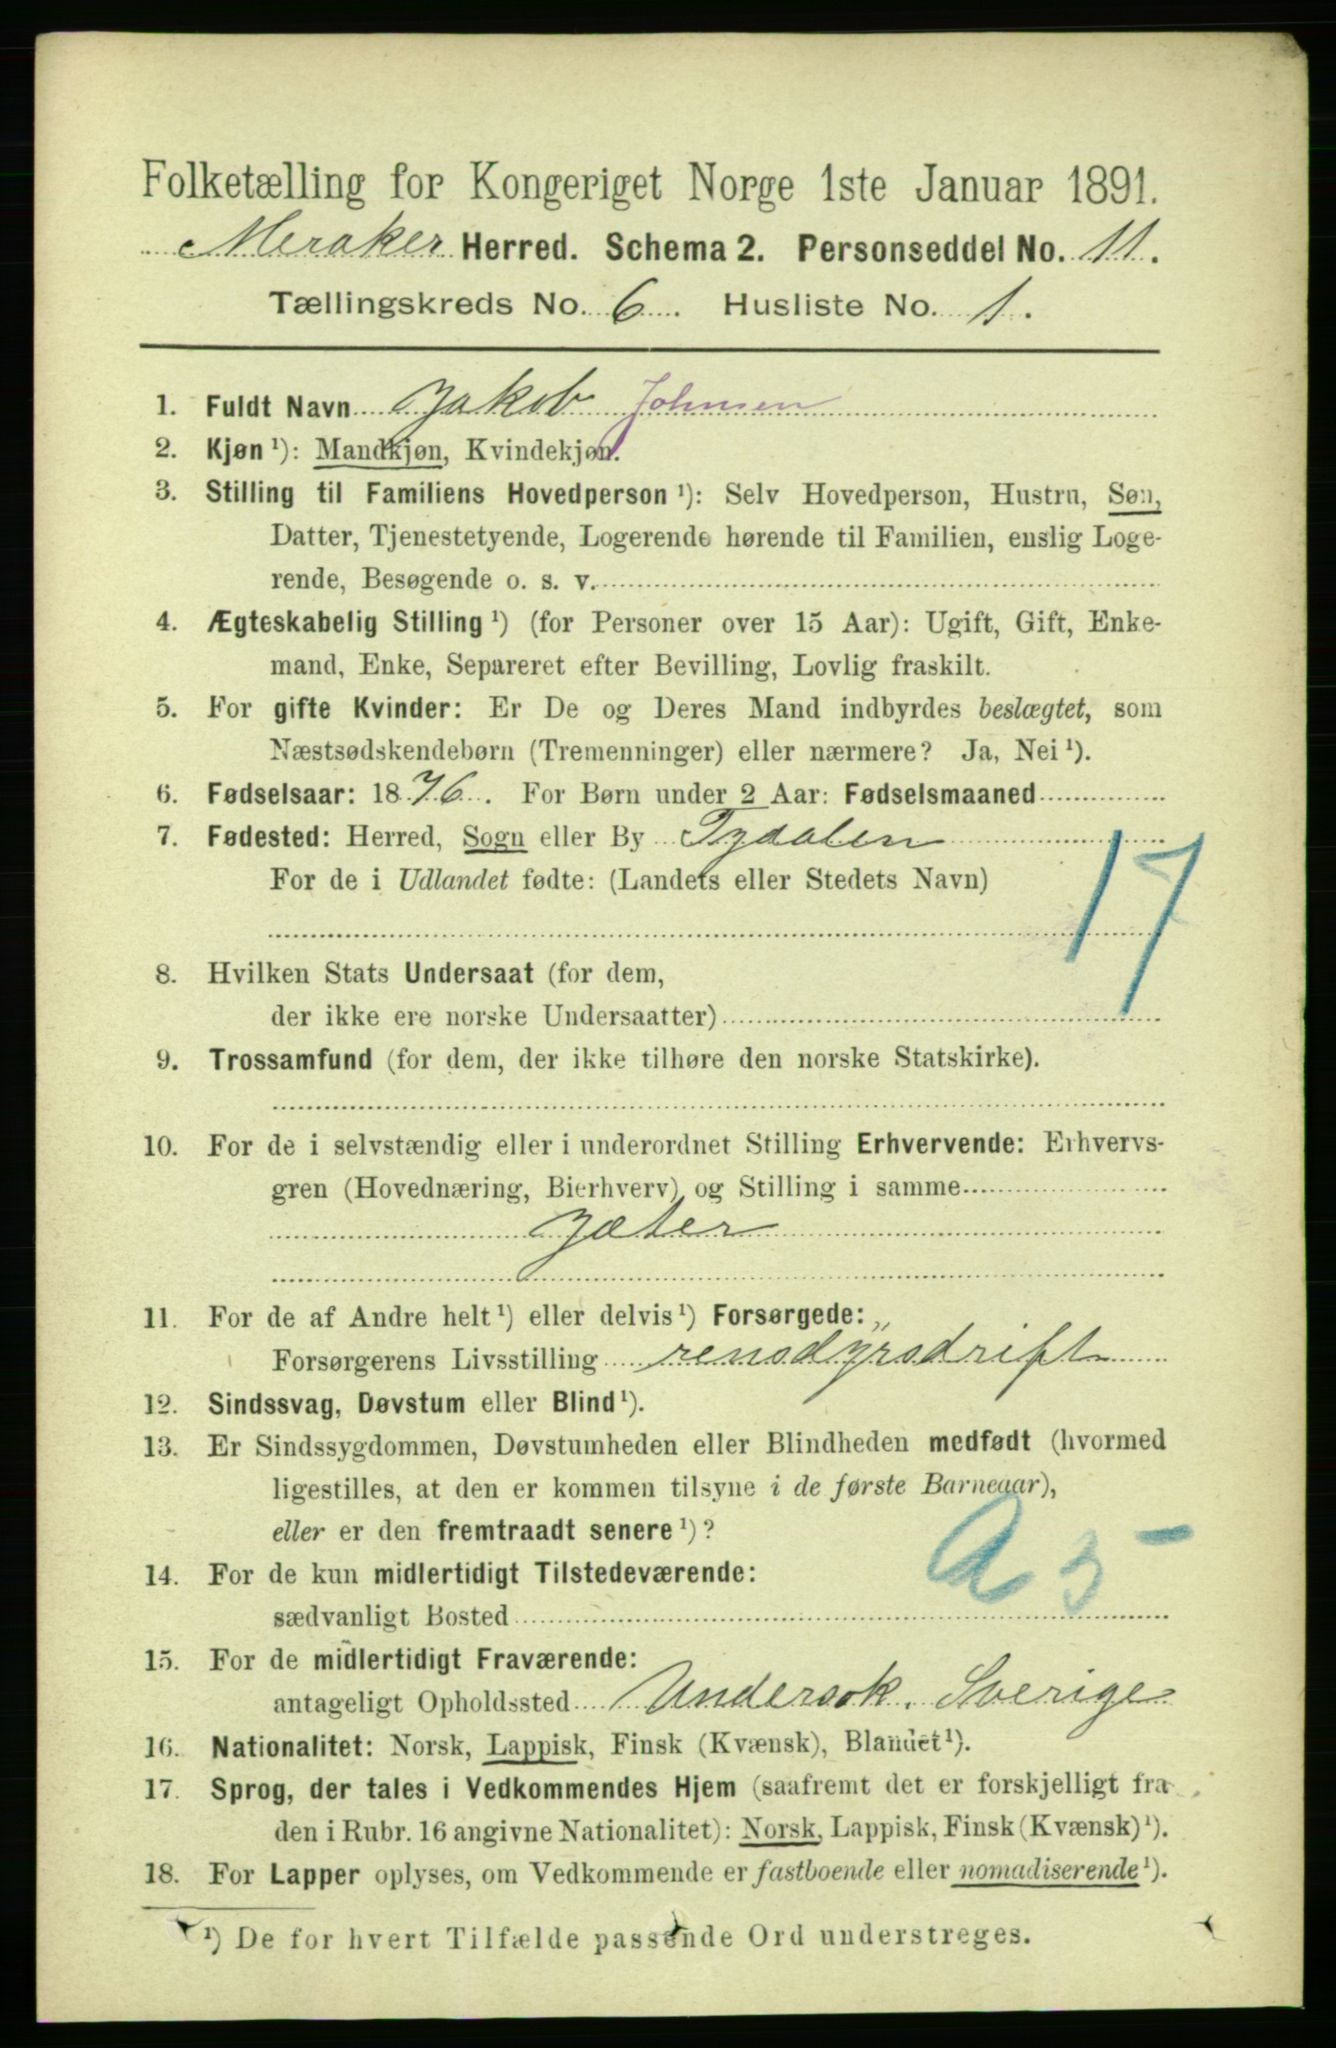 Folketælling for Kongeriget Norge 1ste Januar 1891.
Meraker Herred. Schema 2. Personseddel No. 11.
Tællingskreds No. 6. Husliste No. 1.
1. Fuldt Navn Jakob Johnsen
2. Kjøn ¹): Mandkjøn, Kvindekjøn.
3. Stilling til Familiens Hovedperson ¹): Selv Hovedperson, Hustru, Søn,
Datter, Tjenestetyende, Logerende hørende til Familien, enslig Loge-
rende, Besøgende o. s. v.
4. Ægteskabelig Stilling ¹) (for Personer over 15 Aar): Ugift, Gift, Enke-
mand, Enke, Separeret efter Bevilling, Lovlig fraskilt.
5. For gifte Kvinder: Er De og Deres Mand indbyrdes beslægtet, som
Næstsødskendebørn (Tremenninger) eller nærmere? Ja, Nei ¹).
6. Fødselsaar: 1876. For Børn under 2 Aar: Fødselsmaaned
7. Fødested: Herred, Sogn eller By Tydalen
For de i Udlandet fødte: (Landets eller Stedets Navn)
17
8. Hvilken Stats Undersaat (for dem,
der ikke ere norske Undersaatter)
9. Trossamfund (for dem, der ikke tilhøre den norske Statskirke).
10. For de i selvstændig eller i underordnet Stilling Erhvervende: Erhvervs-
gren (Hovednæring, Bierhverv) og Stilling i samme
Jæter
11. For de af Andre helt ¹) eller delvis ¹) Forsørgede: „
Forsørgerens Livsstilling rensdyrsdrift
12. Sindssvag, Døvstum eller Blind ¹).
13. Er Sindssygdommen, Døvstumheden eller Blindheden medfødt (hvormed
ligestilles, at den er kommen tilsyne i de første Barneaar),
eller er den fremtraadt senere ¹)?
A 3 -
14. For de kun midlertidigt Tilstedeværende:
sædvanligt Bosted
15. For de midlertidigt Fraværende:
antageligt Opholdssted Undersok. Sverige
16. Nationalitet: Norsk, Lappisk, Finsk (Kvænsk), Blandet ¹).
17. Sprog, der tales i Vedkommendes Hjem (saafremt det er forskjelligt fra
den i Rubr. 16 angivne Nationalitet): Norsk, Lappisk, Finsk (Kvænsk) ¹).
18. For Lapper oplyses, om Vedkommende er fastboende eller nomadiserende ¹).
¹) De for hvert Tilfælde passende Ord understreges.